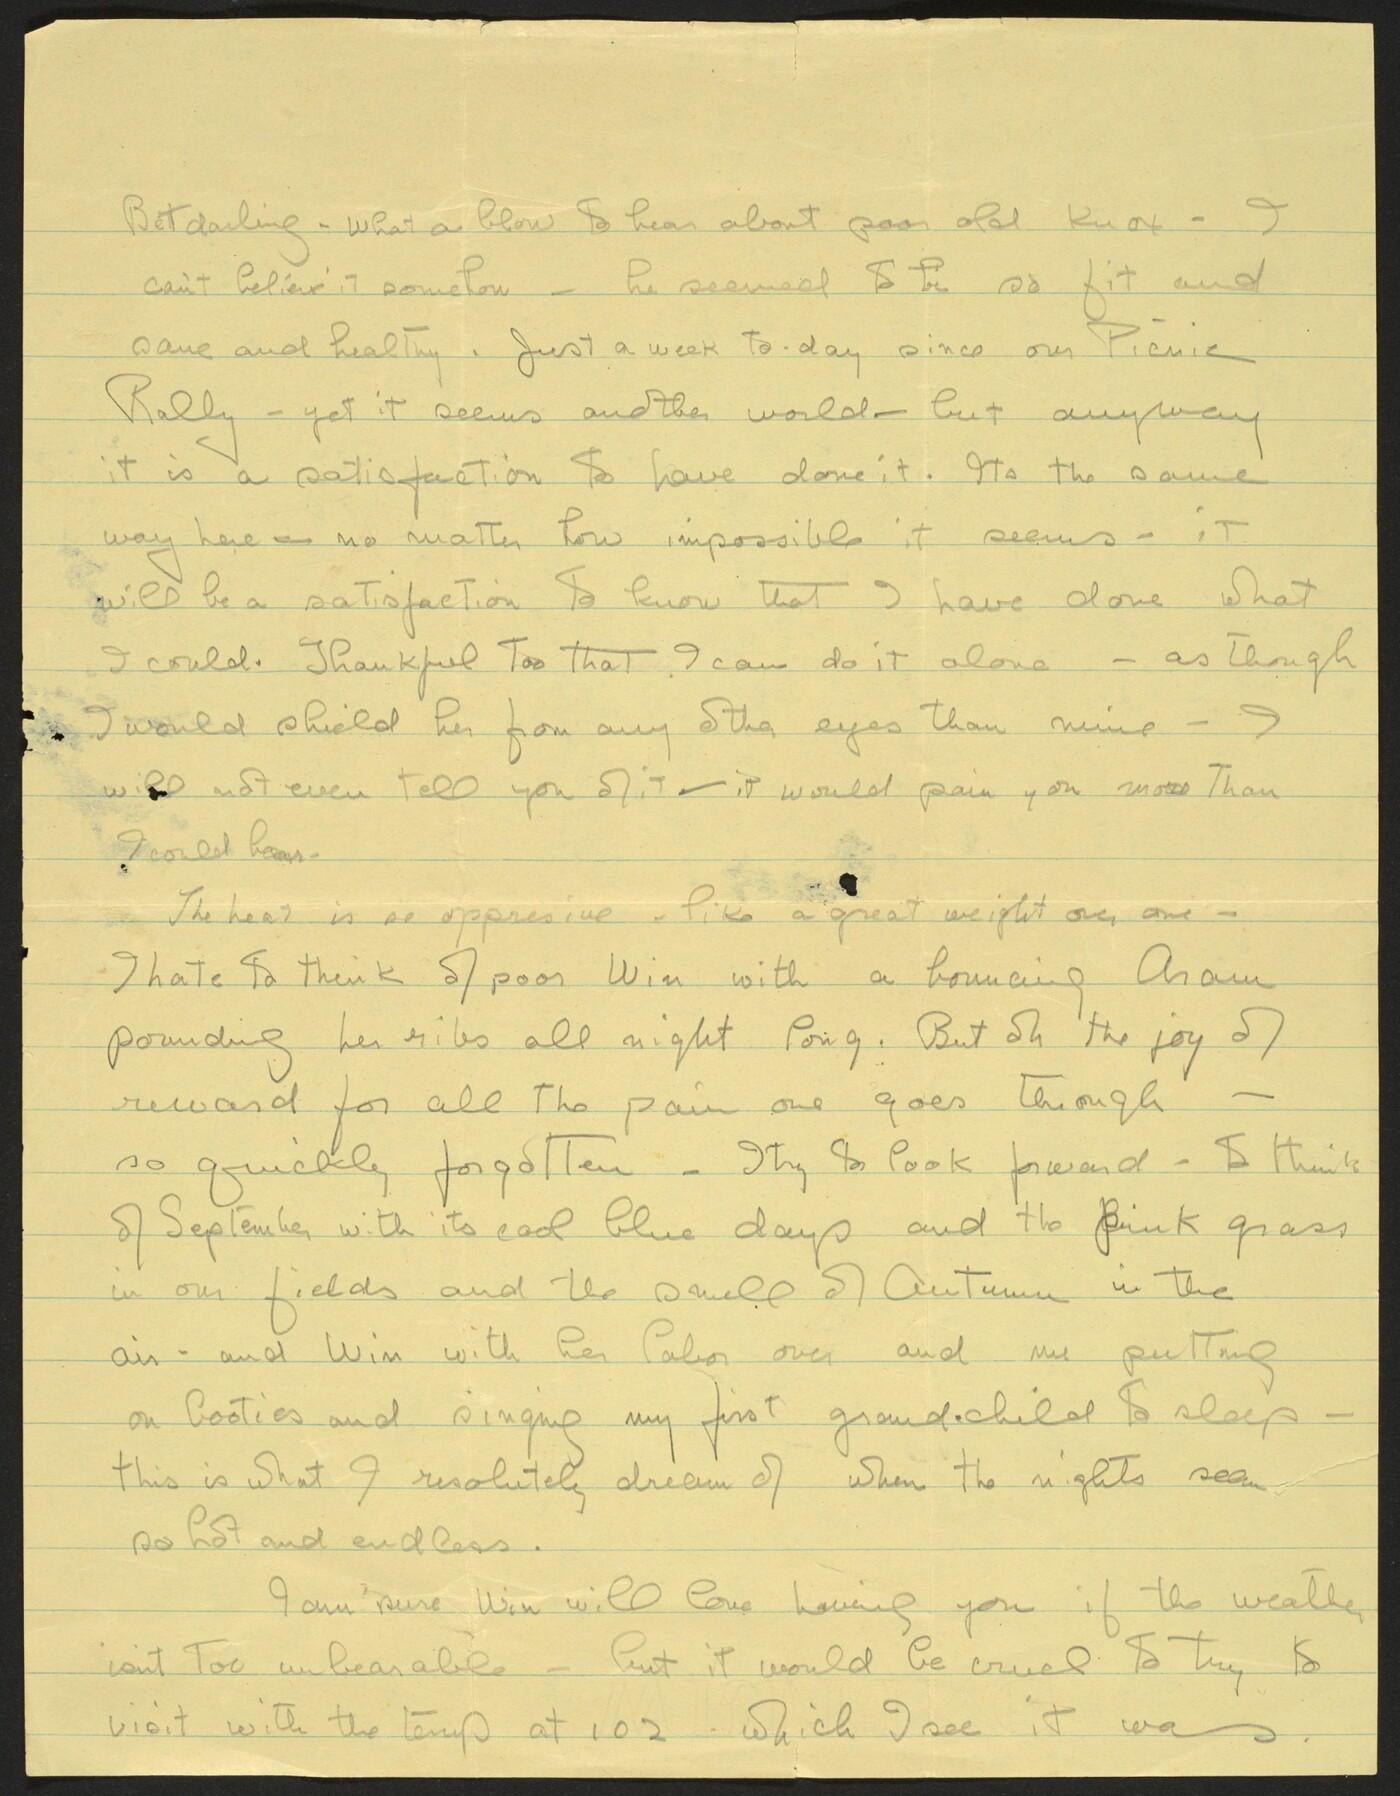 Bet darling - what a blow to hear about poor old Knox - I
can't believe it somehow - he seemed to be so fit and
sane and healthy. Just a week to-day since our Picnic
Rally - yet it seems another world - but anyway
it is a satisfaction to have done it. Its the same
way here - no matter how impossible it seems - it
will be a satisfaction to know that I have done what
I could. Thankful too that I can do it alone - as though
I would shield her from any other eyes than mine - I
will not even tell you of it - it would pain you more than
I could bear -
The heat is so oppresive - like a great weight over one -
I hate to think of poor Win with a bouncing Aram
pounding her ribs all night long. But oh the joy of
reward for all the pain one goes through -
so quickly forgotten - I try to look forward - to think
of September with its cool blue days and the pink grass
in our fields and the smell of Autumn in the
air - and Win with her labor over and me putting
on booties and singing my first grand-child to sleep -
this is what I resolutely dream of when the nights seem
so hot and endless.
I am sure Win will love having you if the weather
isn't too unbearable - but it would be cruel to try to
visit with the temp at 102 - which I see it was.